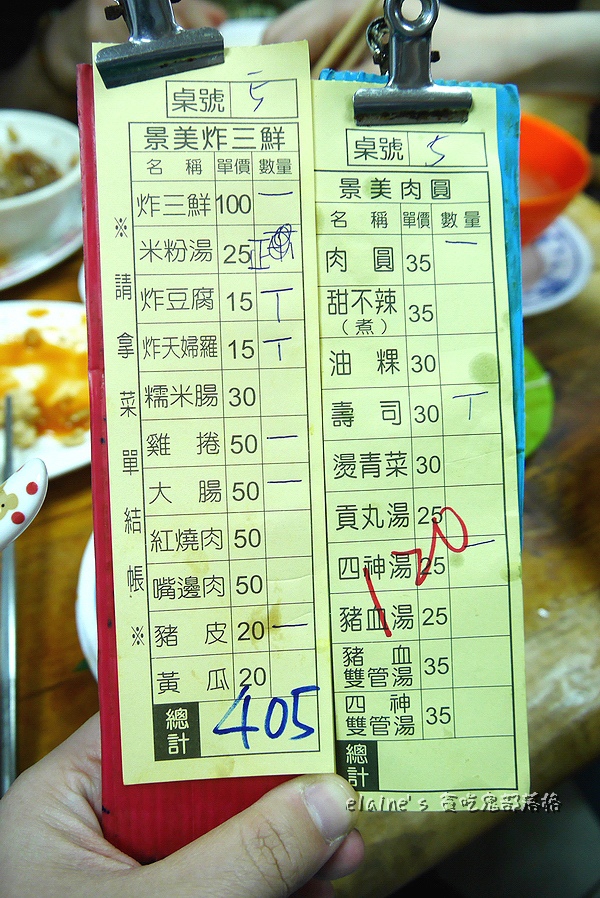 桌號 5
景美炸三鮮
名稱 單價 數量
炸三鮮 100 一
米粉湯 25 正
炸豆腐 15 丅
炸天婦羅 15 丅
糯米腸 30
雞捲 50 一
大腸 50 一
紅燒肉 50
嘴邊肉 50
豬皮 20 一
黃瓜 20
總計 405
※請拿菜單結帳※
桌號 5
景美肉圓
名稱 單價 數量
肉圓 35 一
甜不辣(煮) 35
油粿 30
壽司 30 丅
燙青菜 30
貢丸湯 25
四神湯 25 一
豬血湯 25
豬血雙管湯 35
四神雙管湯 35
120
總計
elaine's 貪吃鬼部落格